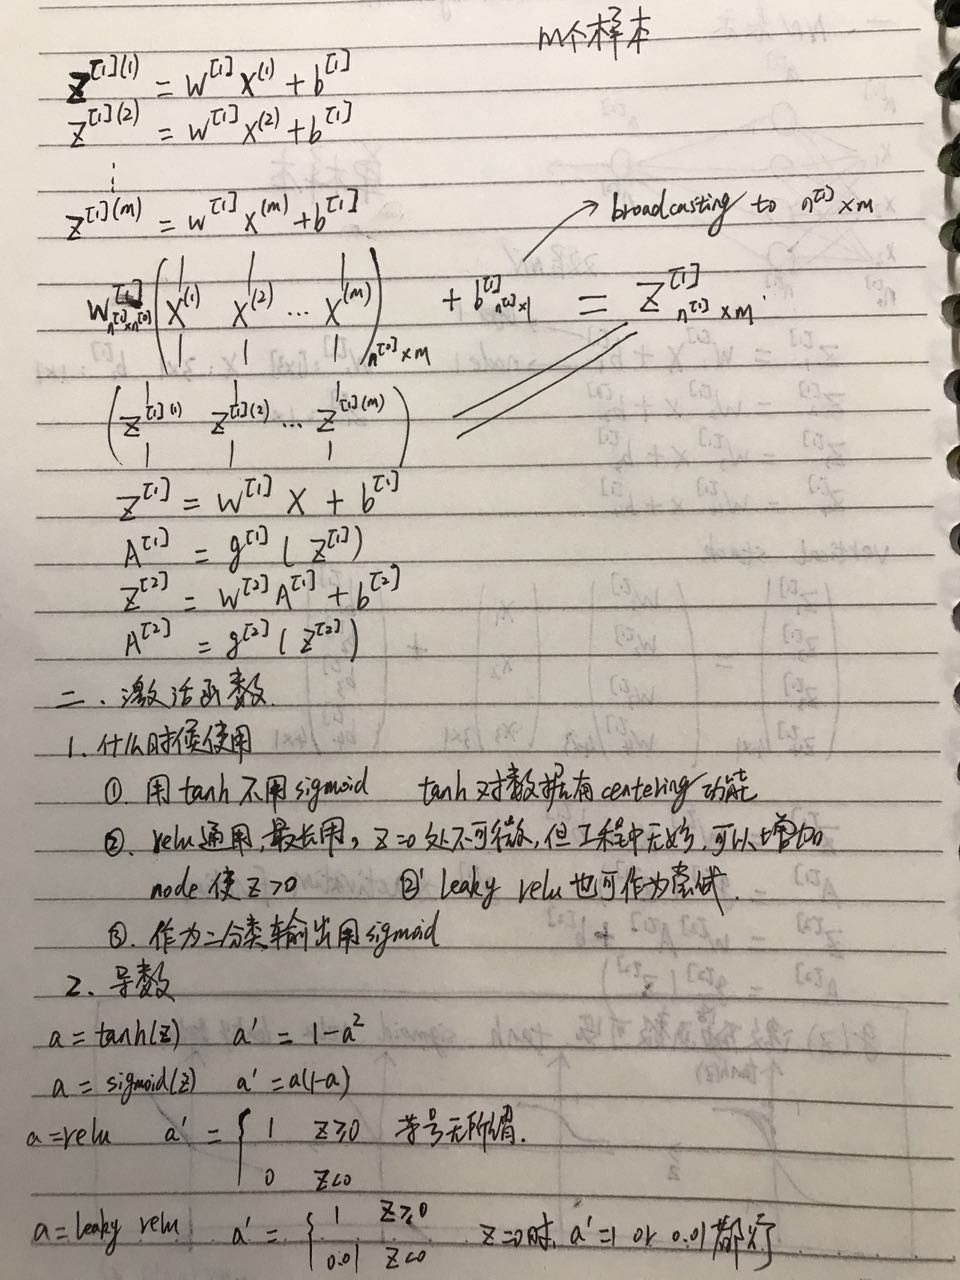 m个样本
Z^[1](1) = W^[1] X^(1) + b^[1]
Z^[1](2) = W^[1] X^(2) + b^[1]
⋮
Z^[1](m) = W^[1] X^(m) + b^[1]
→ broadcasting to n^[1] × m
W^[1]_{n^[1]×n^[0]} ( X^(1) X^(2) ... X^(m) )_{n^[0]×m} + b^[1]_{n^[1]×1} = Z^[1]_{n^[1]×m}
( Z^[1](1) Z^[1](2) ... Z^[1](m) )
Z^[1] = W^[1] X + b^[1]
A^[1] = g^[1] ( Z^[1] )
Z^[2] = W^[2] A^[1] + b^[2]
A^[2] = g^[2] ( Z^[2] )
二、激活函数
1. 什么时候使用
①. 用 tanh 不用 sigmoid tanh 对数据有 centering 功能
②. relu 通用, 最长用, Z=0 处不可微, 但工程中无妨, 可以增加
node 使 Z>0 ②' leaky relu 也可作为尝试.
③. 作为二分类输出用 sigmoid
2. 导数
a = tanh(z) a' = 1-a²
a = sigmoid(z) a' = a(1-a)
a = relu a' = { 1 Z≥0 等号无所谓.
0 Z<0
a = leaky relu a' = { 1 Z≥0
0.01 Z<0 Z=0时, a'=1 or 0.01 都行